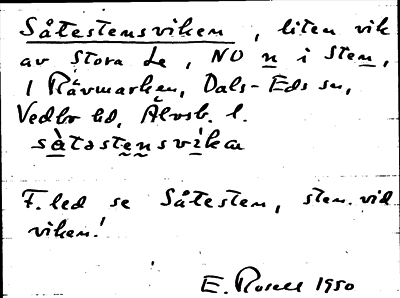 Såtestensviken, liten vik
av Stora Le, NO n i Sten,
i Rävmarken, Dals-Eds sn,
Vedbo hd, Älvsb. l.
sàtəstensvìkən
F. led se Såtesten, sten vid
viken!
E. Rosell 1950